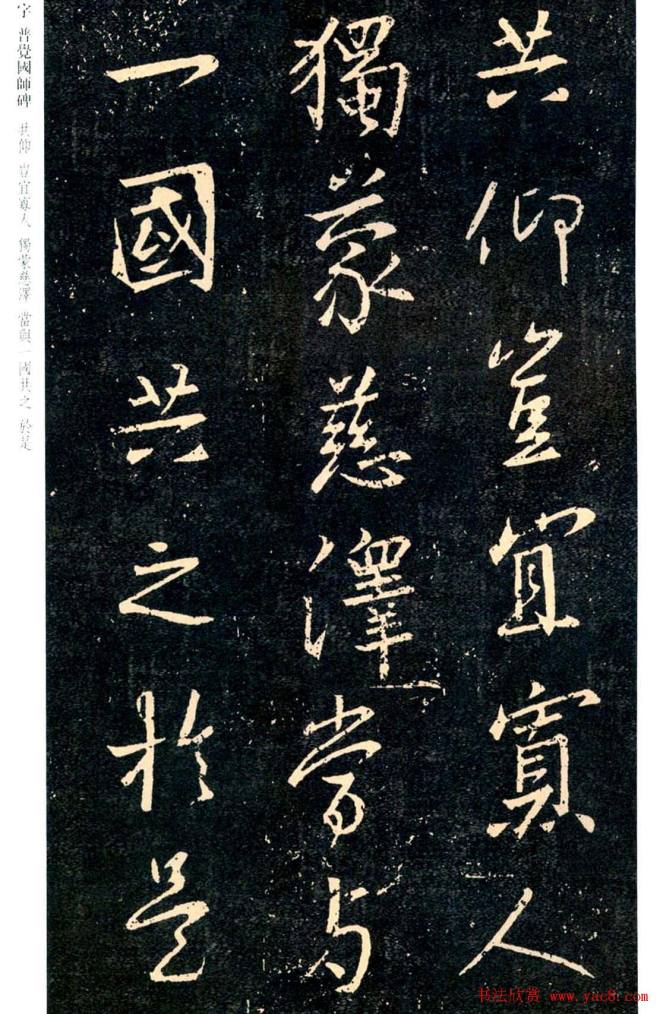 共仰豈宜寡人
獨蒙慈澤當与
一國共之於是
字 普覺國師碑 共仰 豈宜寡人 獨蒙慈澤 當與一國共之 於是
书法欣赏 www.yac8.com